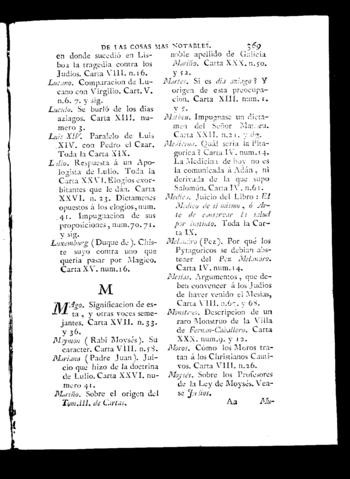 DE LAS COSAS MAS NOTABLES. 369
en donde sucedió en Lis-
boa la tragedia contra los
Judios. Carta VIII. n.16.
Lucano. Comparacion de Lu-
cano con Virgilio. Cart. V.
n.6. 7. y sig.
Luculo. Se burló de los dias
aziagos. Carta XIII. nu-
mero 3.
Luis XIV. Paralelo de Luis
XIV. con Pedro el Czar.
Toda la Carta XIX.
Lulio. Respuesta á un Apo-
logista de Lulio. Toda la
Carta XXVI. Elogios exor-
bitantes que le dán. Carta
XXVI. n. 23. Dictamenes
opuestos á los elogios, num.
41. Impugnacion de sus
proposiciones, num. 70. 71.
y sig.
Luxemburg (Duque de). Chis-
te suyo contra uno que
queria pasar por Magico.
Carta XV. num.16.
M
MAgo. Significacion de es-
ta, y otras voces seme-
jantes. Carta XVII. n. 33.
y 36.
Maymon (Rabí Moysés). Su
caracter. Carta VIII. n.58.
Mariana (Padre Juan). Jui-
cio que hizo de la doctrina
de Lulio. Carta XXVI. nu-
mero 41.
Mariño. Sobre el origen del
Tom.III. de Cartas.
noble apellido de Galicia
Mariño. Carta XXX. n.50.
y 12.
Martes. Si es dia aziago? Y
origen de esta preocupa-
cion. Carta XIII. num. 1.
y 5.
Impugnase un dicta-
men del Señor
Carta XXII. n.21, y sig.
Quál sería la Pita-
gorica? Carta IV. num.14.
La Medicina de hoy no es
la comunicada á Adán, ni
derivada de la que supo
Salomón. Carta IV. n.61.
Medico. Juicio del Libro: El
Medico de sí mismo, ó Ar-
te de conservar la salud
por instinto. Toda la Car-
ta IX.
Melanuro (Pez). Por qué los
Pytagoricos se debian abs-
tener del Pez Melanuro.
Carta IV. num.14.
Mesias. Argumentos, que de-
ben convencer á los Judios
de haver venido el Mesias,
Carta VIII. n.67. y 68.
Monstruos. Descripcion de un
raro Monstruo de la Villa
de Fernan-Caballero. Carta
XXX. num.9. y 12.
Moros. Cómo los Moros tra-
tan á los Christianos Cauti-
vos. Carta VIII. n.26.
Moysés. Sobre los Profesores
de la Ley de Moysés. Vea-
se Judios.
Aa Mu-